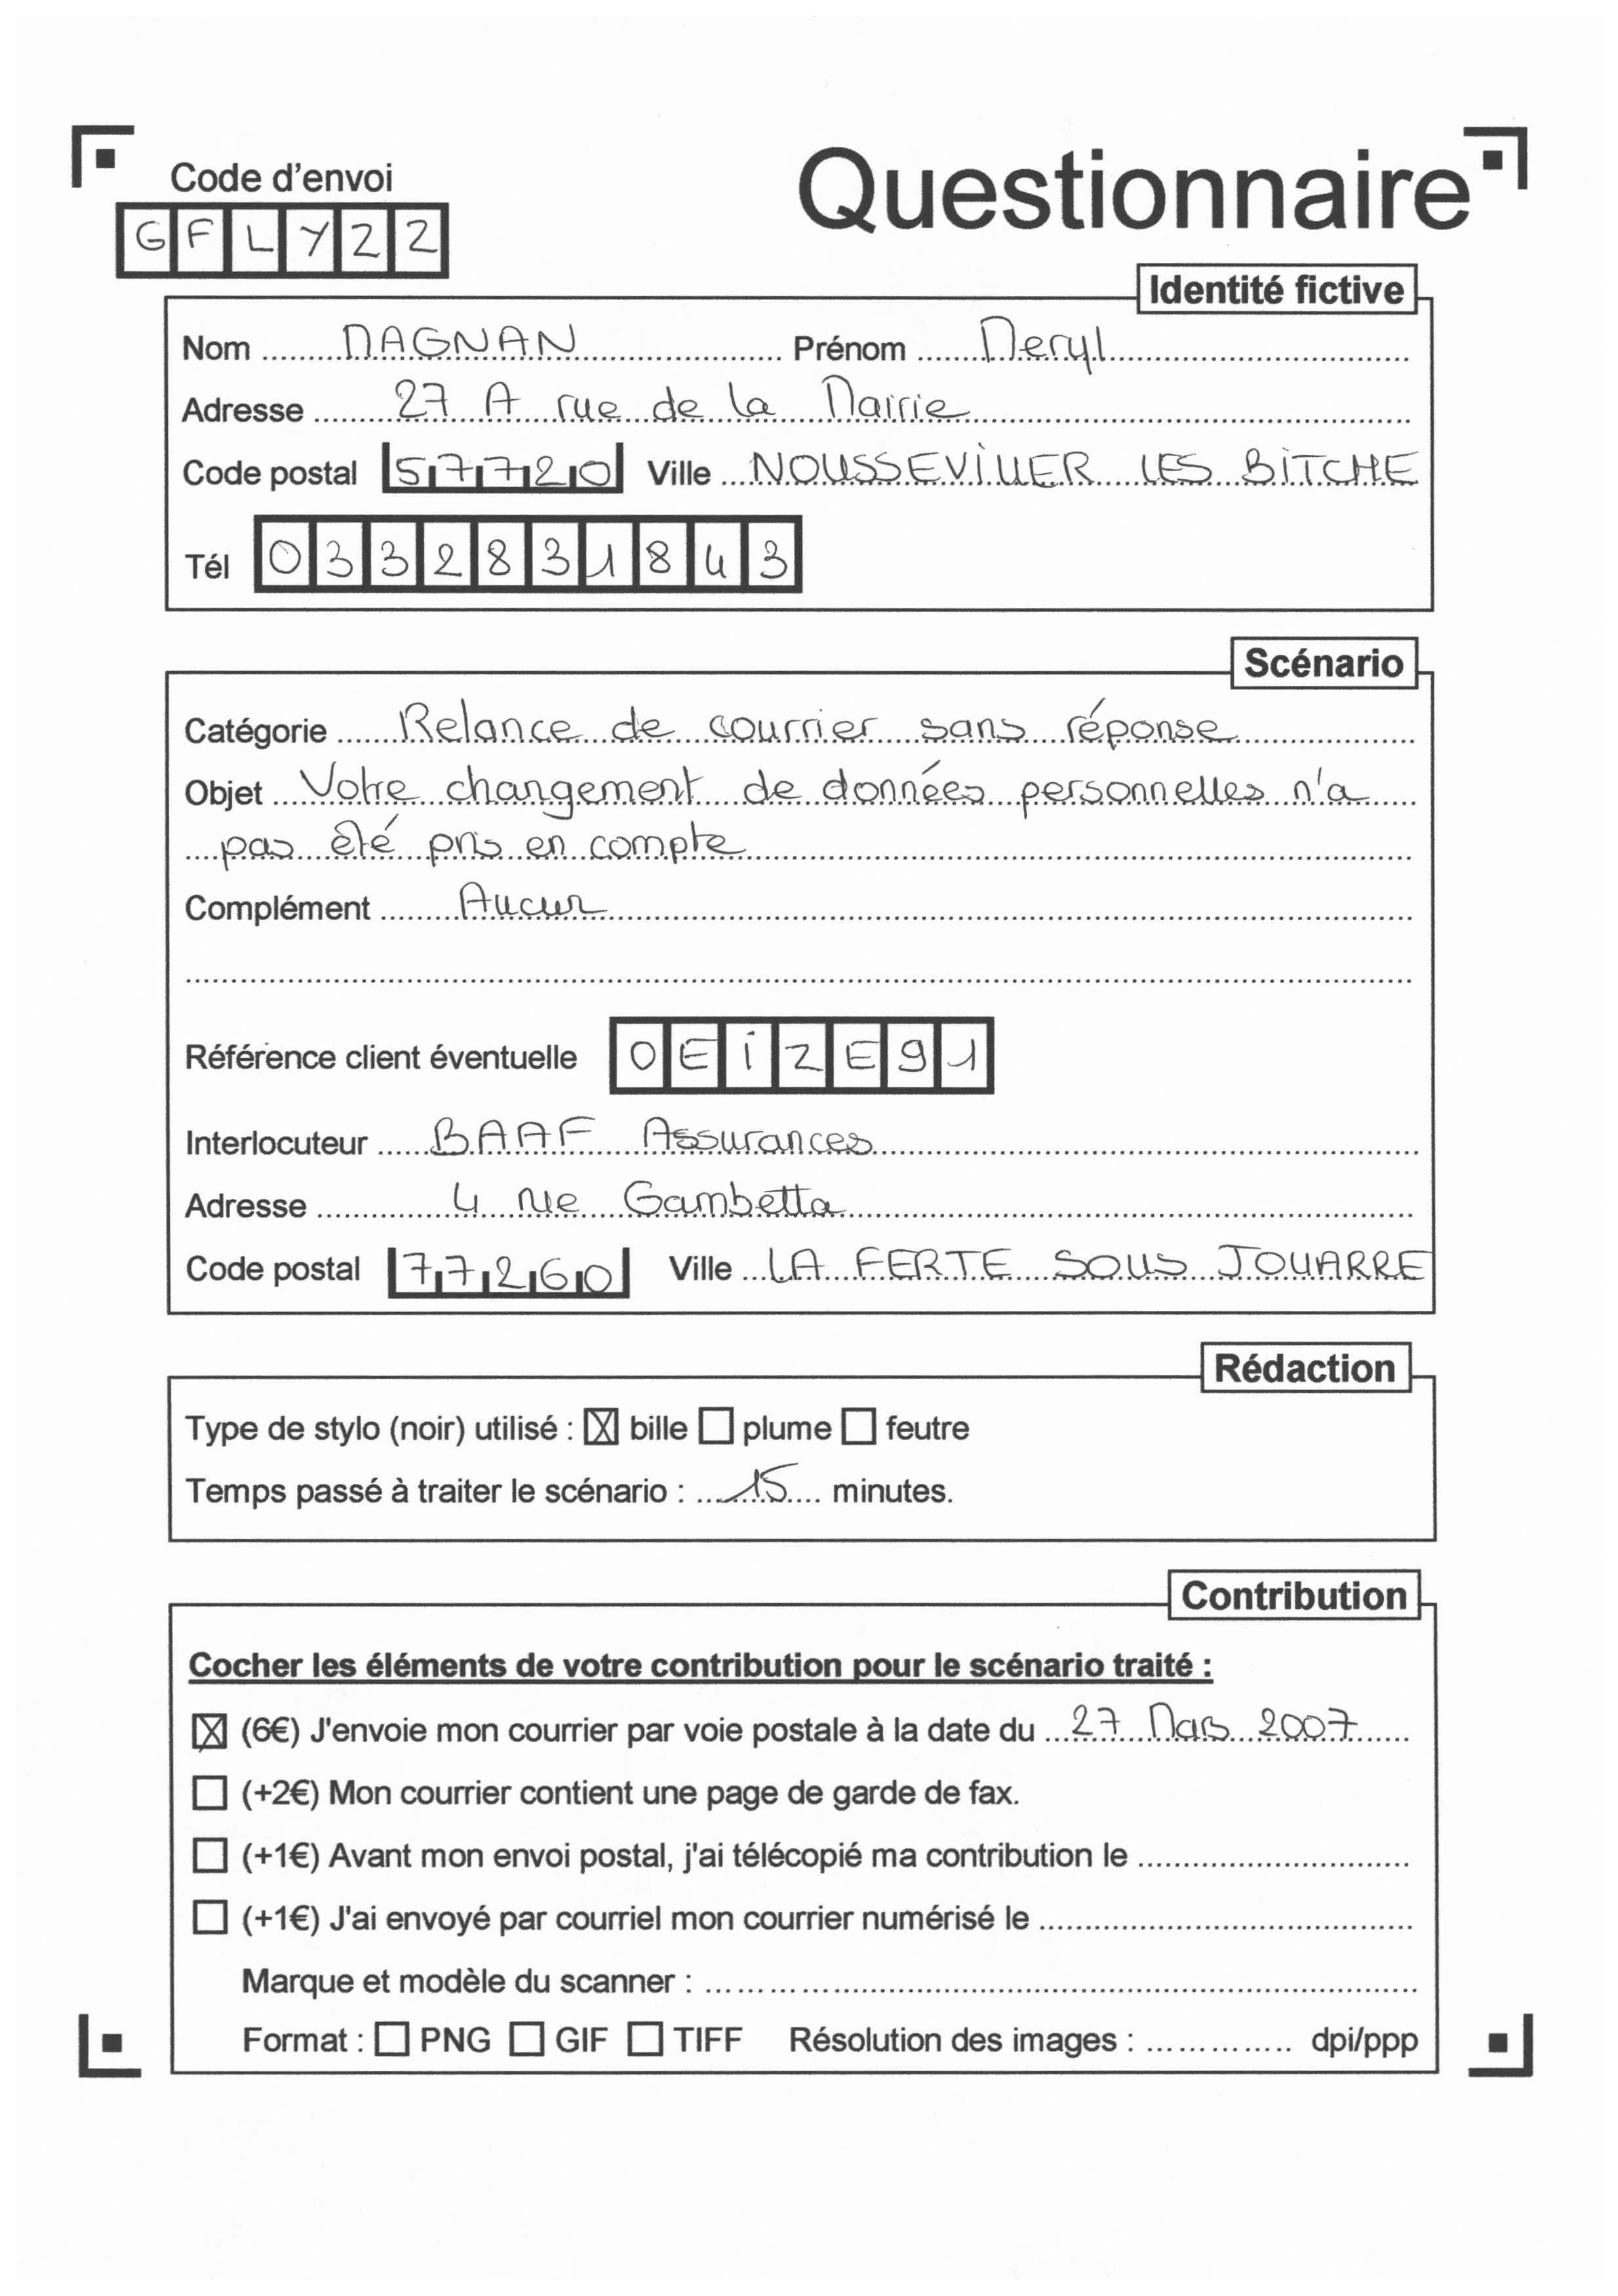 Code d'envoi
Questionnaire
GFLY22
Identité fictive
Nom MAGNAN Prénom Meryl
Adresse 27 A rue de la Mairie
Code postal 57720 Ville NOUSSEVILLER LES BITCHE
Tél 0332831843
Scénario
Catégorie Relance de courrier sans réponse
Objet Votre changement de données personnelles n'a
pas été pris en compte
Complément Aucun
Référence client éventuelle OEIZE91
Interlocuteur BAAF Assurances
Adresse 4 rue Gambetta
Code postal 77260 Ville LA FERTE SOUS JOUARRE
Rédaction
Type de stylo (noir) utilisé : ☒ bille ☐ plume ☐ feutre
Temps passé à traiter le scénario : 15 minutes.
Contribution
Cocher les éléments de votre contribution pour le scénario traité :
☒ (6€) J'envoie mon courrier par voie postale à la date du 27 Mars 2007
☐ (+2€) Mon courrier contient une page de garde de fax.
☐ (+1€) Avant mon envoi postal, j'ai télécopié ma contribution le
☐ (+1€) J'ai envoyé par courriel mon courrier numérisé le
Marque et modèle du scanner :
Format : ☐ PNG ☐ GIF ☐ TIFF Résolution des images : dpi/ppp